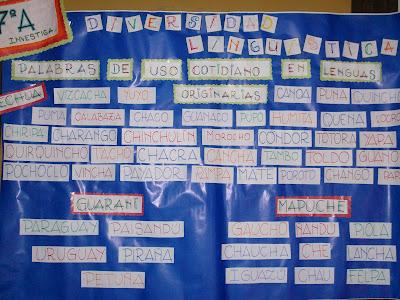 7ºA
INVESTIGA
DIVERSIDAD
LINGUISTICA
PALABRAS DE USO COTIDIANO EN LENGUAS
ORIGINARIAS
ECHUA VIZCACHA YUYO CANOA PUNA QUINCHO
PUMA CALABAZA CHACO GUANACO PUPO HUMITA QUENA LOCRO
CHIRIPA CHARANGO CHINCHULIN MOROCHO CONDOR TOTORA YAPA
QUIRQUINCHO TACHO CHACRA CANCHA TAMBO TOLDO GUANO
POCHOCLO VINCHA PAYADOR PAMPA MATE POROTO CHANGO
GUARANÍ MAPUCHE
PARAGUAY PAISANDÚ GAUCHO ÑANDÚ PIOLA
URUGUAY PIRAÑA CHAUCHA CHE LANCHA
PETUNIA IGUAZÚ CHAU FELPA